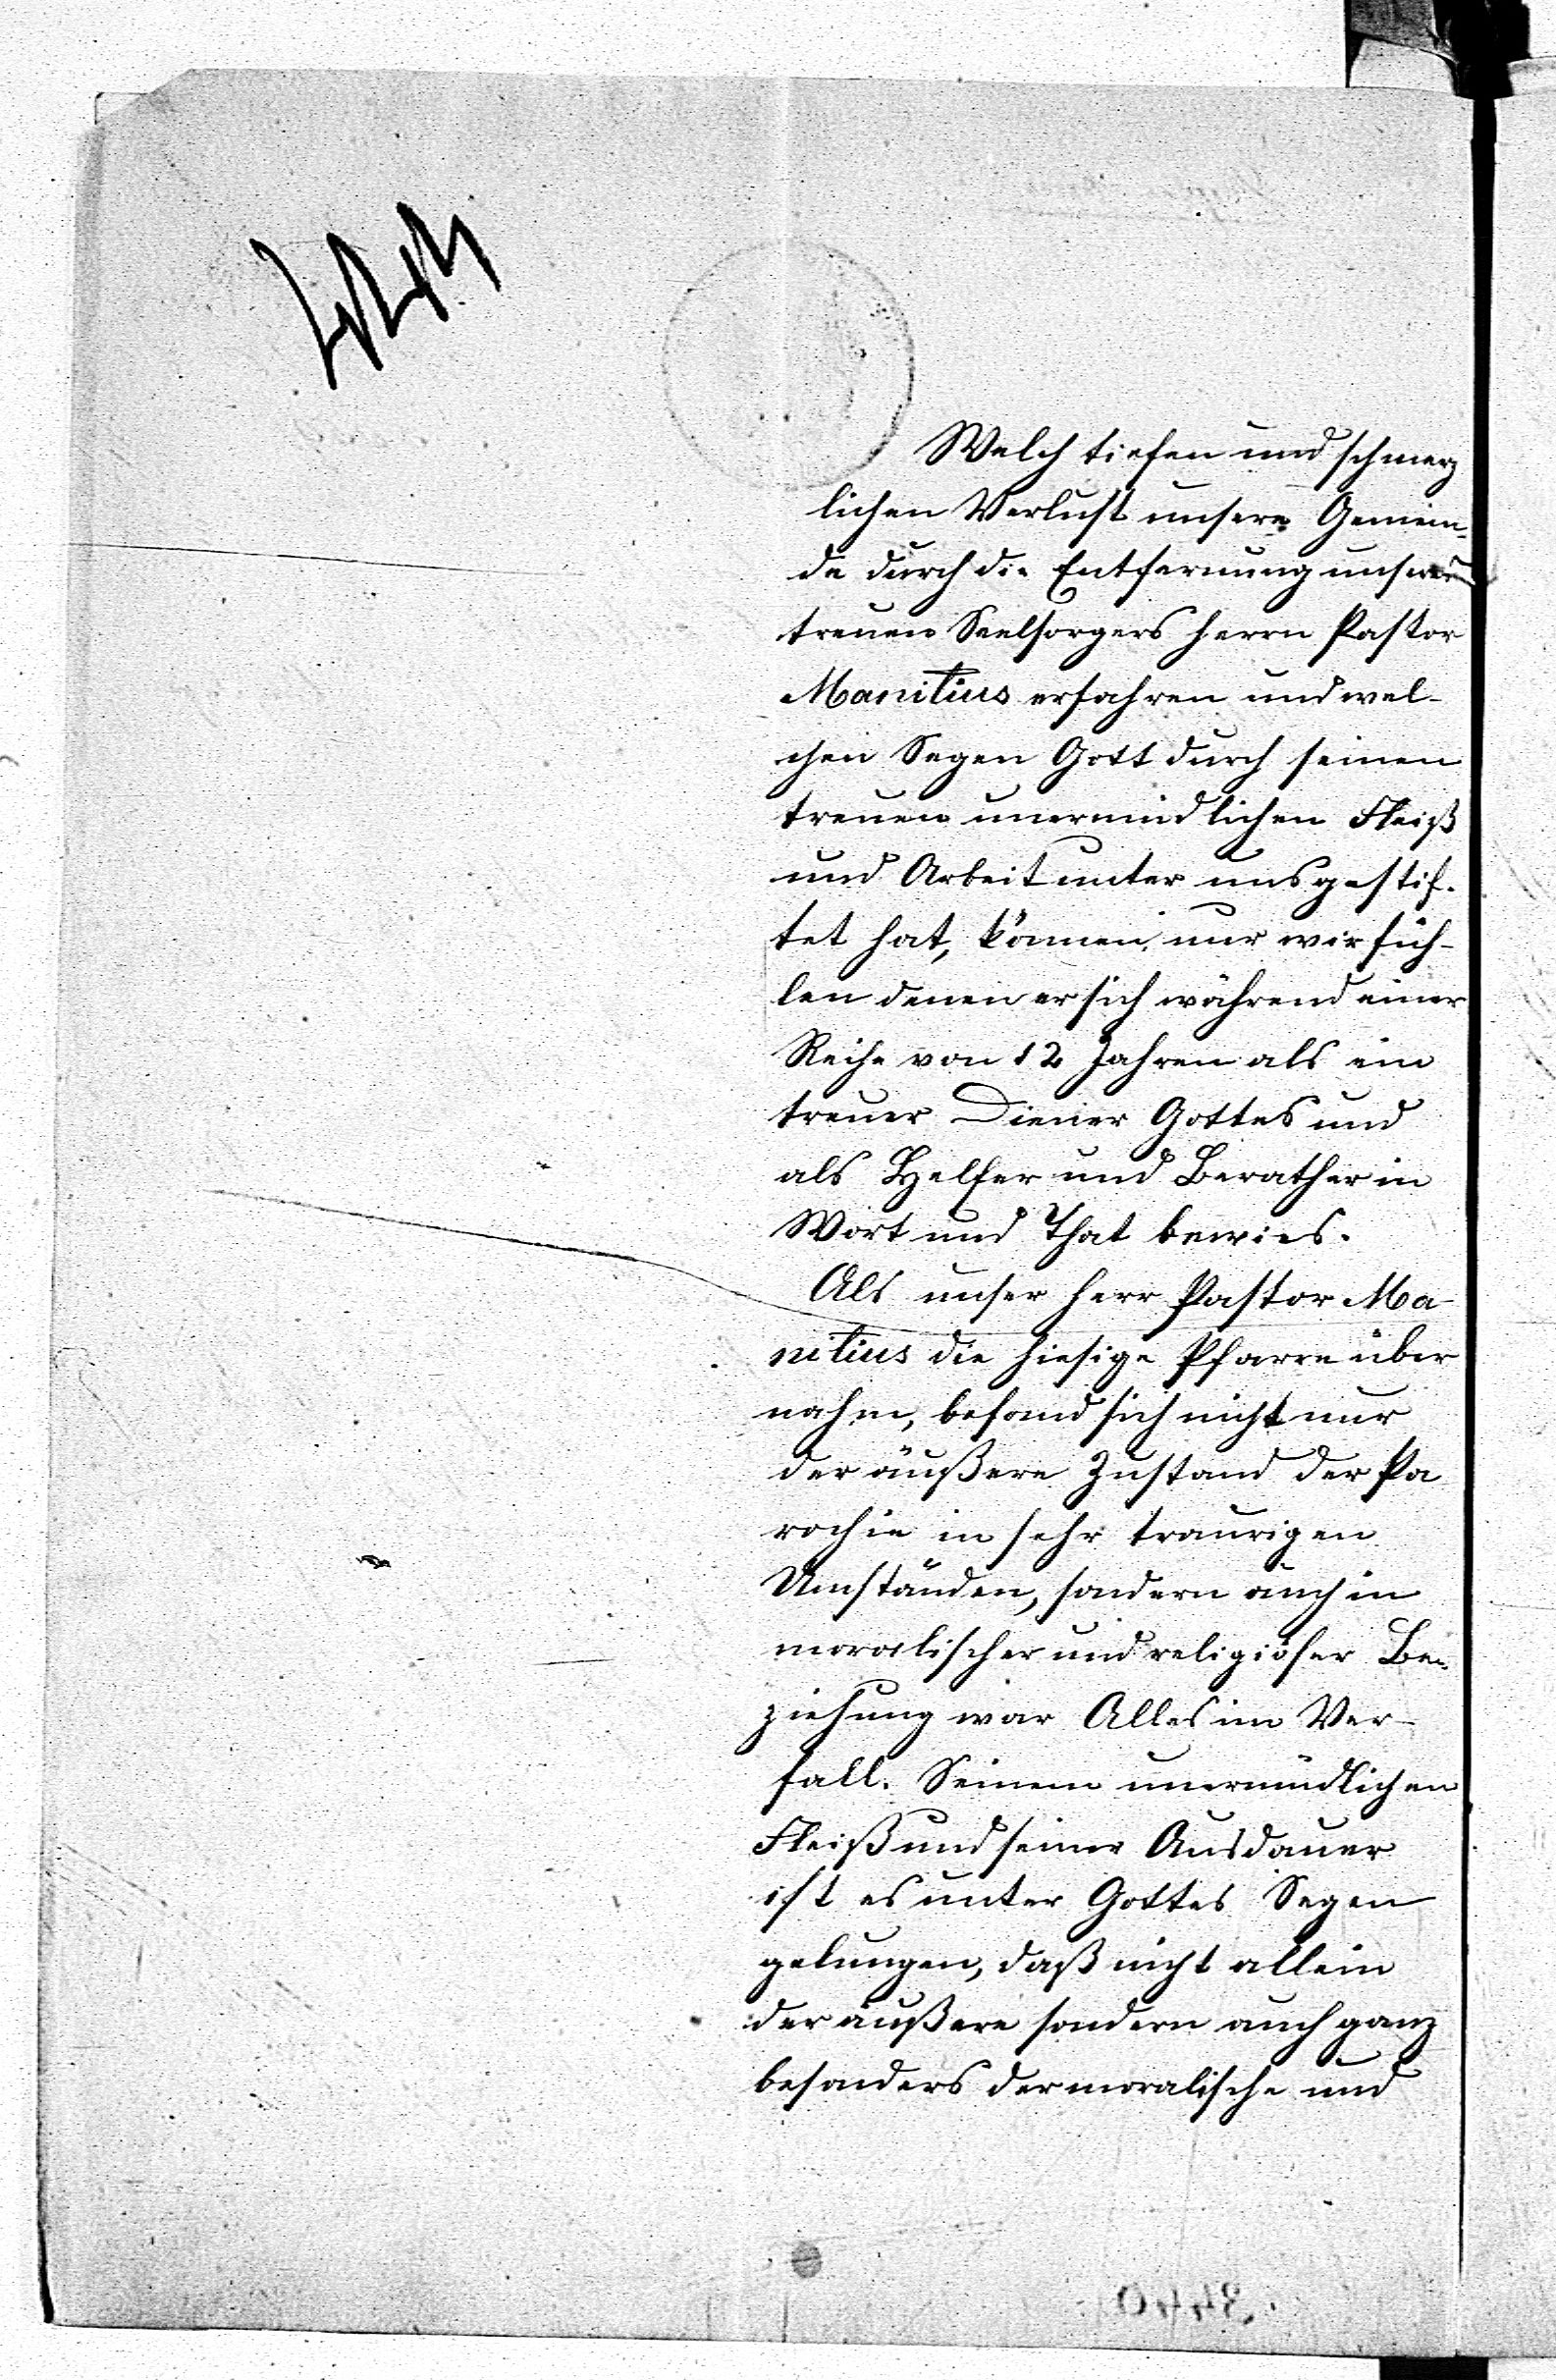 Welch tiefen und schmerz
lichen Verlust unsere Gemein-
de durch die Entfernung unseres
treuen Seelsorgers Herrn Pastor
Manitius erfahren und wel-
chen Segen Gott durch seinen
treuen unermüdlichen Fleiß
und Arbeit unter uns gestif-
tet hat, können nur wir füh-
len denen er sich während einer
Reihe von 12 Jahren als ein
treuer Diener Gottes und
als Helfer und Berather in
Wort und That bewies.
Als unser Herr Pastor Ma-
nitius die hiesige Pfarre über
nahm, befand sich nicht nur
der äußere Zustand der Pa
rochie in sehr traurigen
Umständen, sondern auch in
moralischer und religiöser Be-
ziehung war Alles im Ver-
fall. Seinem unermüdlichen
Fleiß und seiner Ausdauer
ist es unter Gottes Segen
gelungen, daß nicht allein
der äußere sondern auch ganz
besonders der moralische und